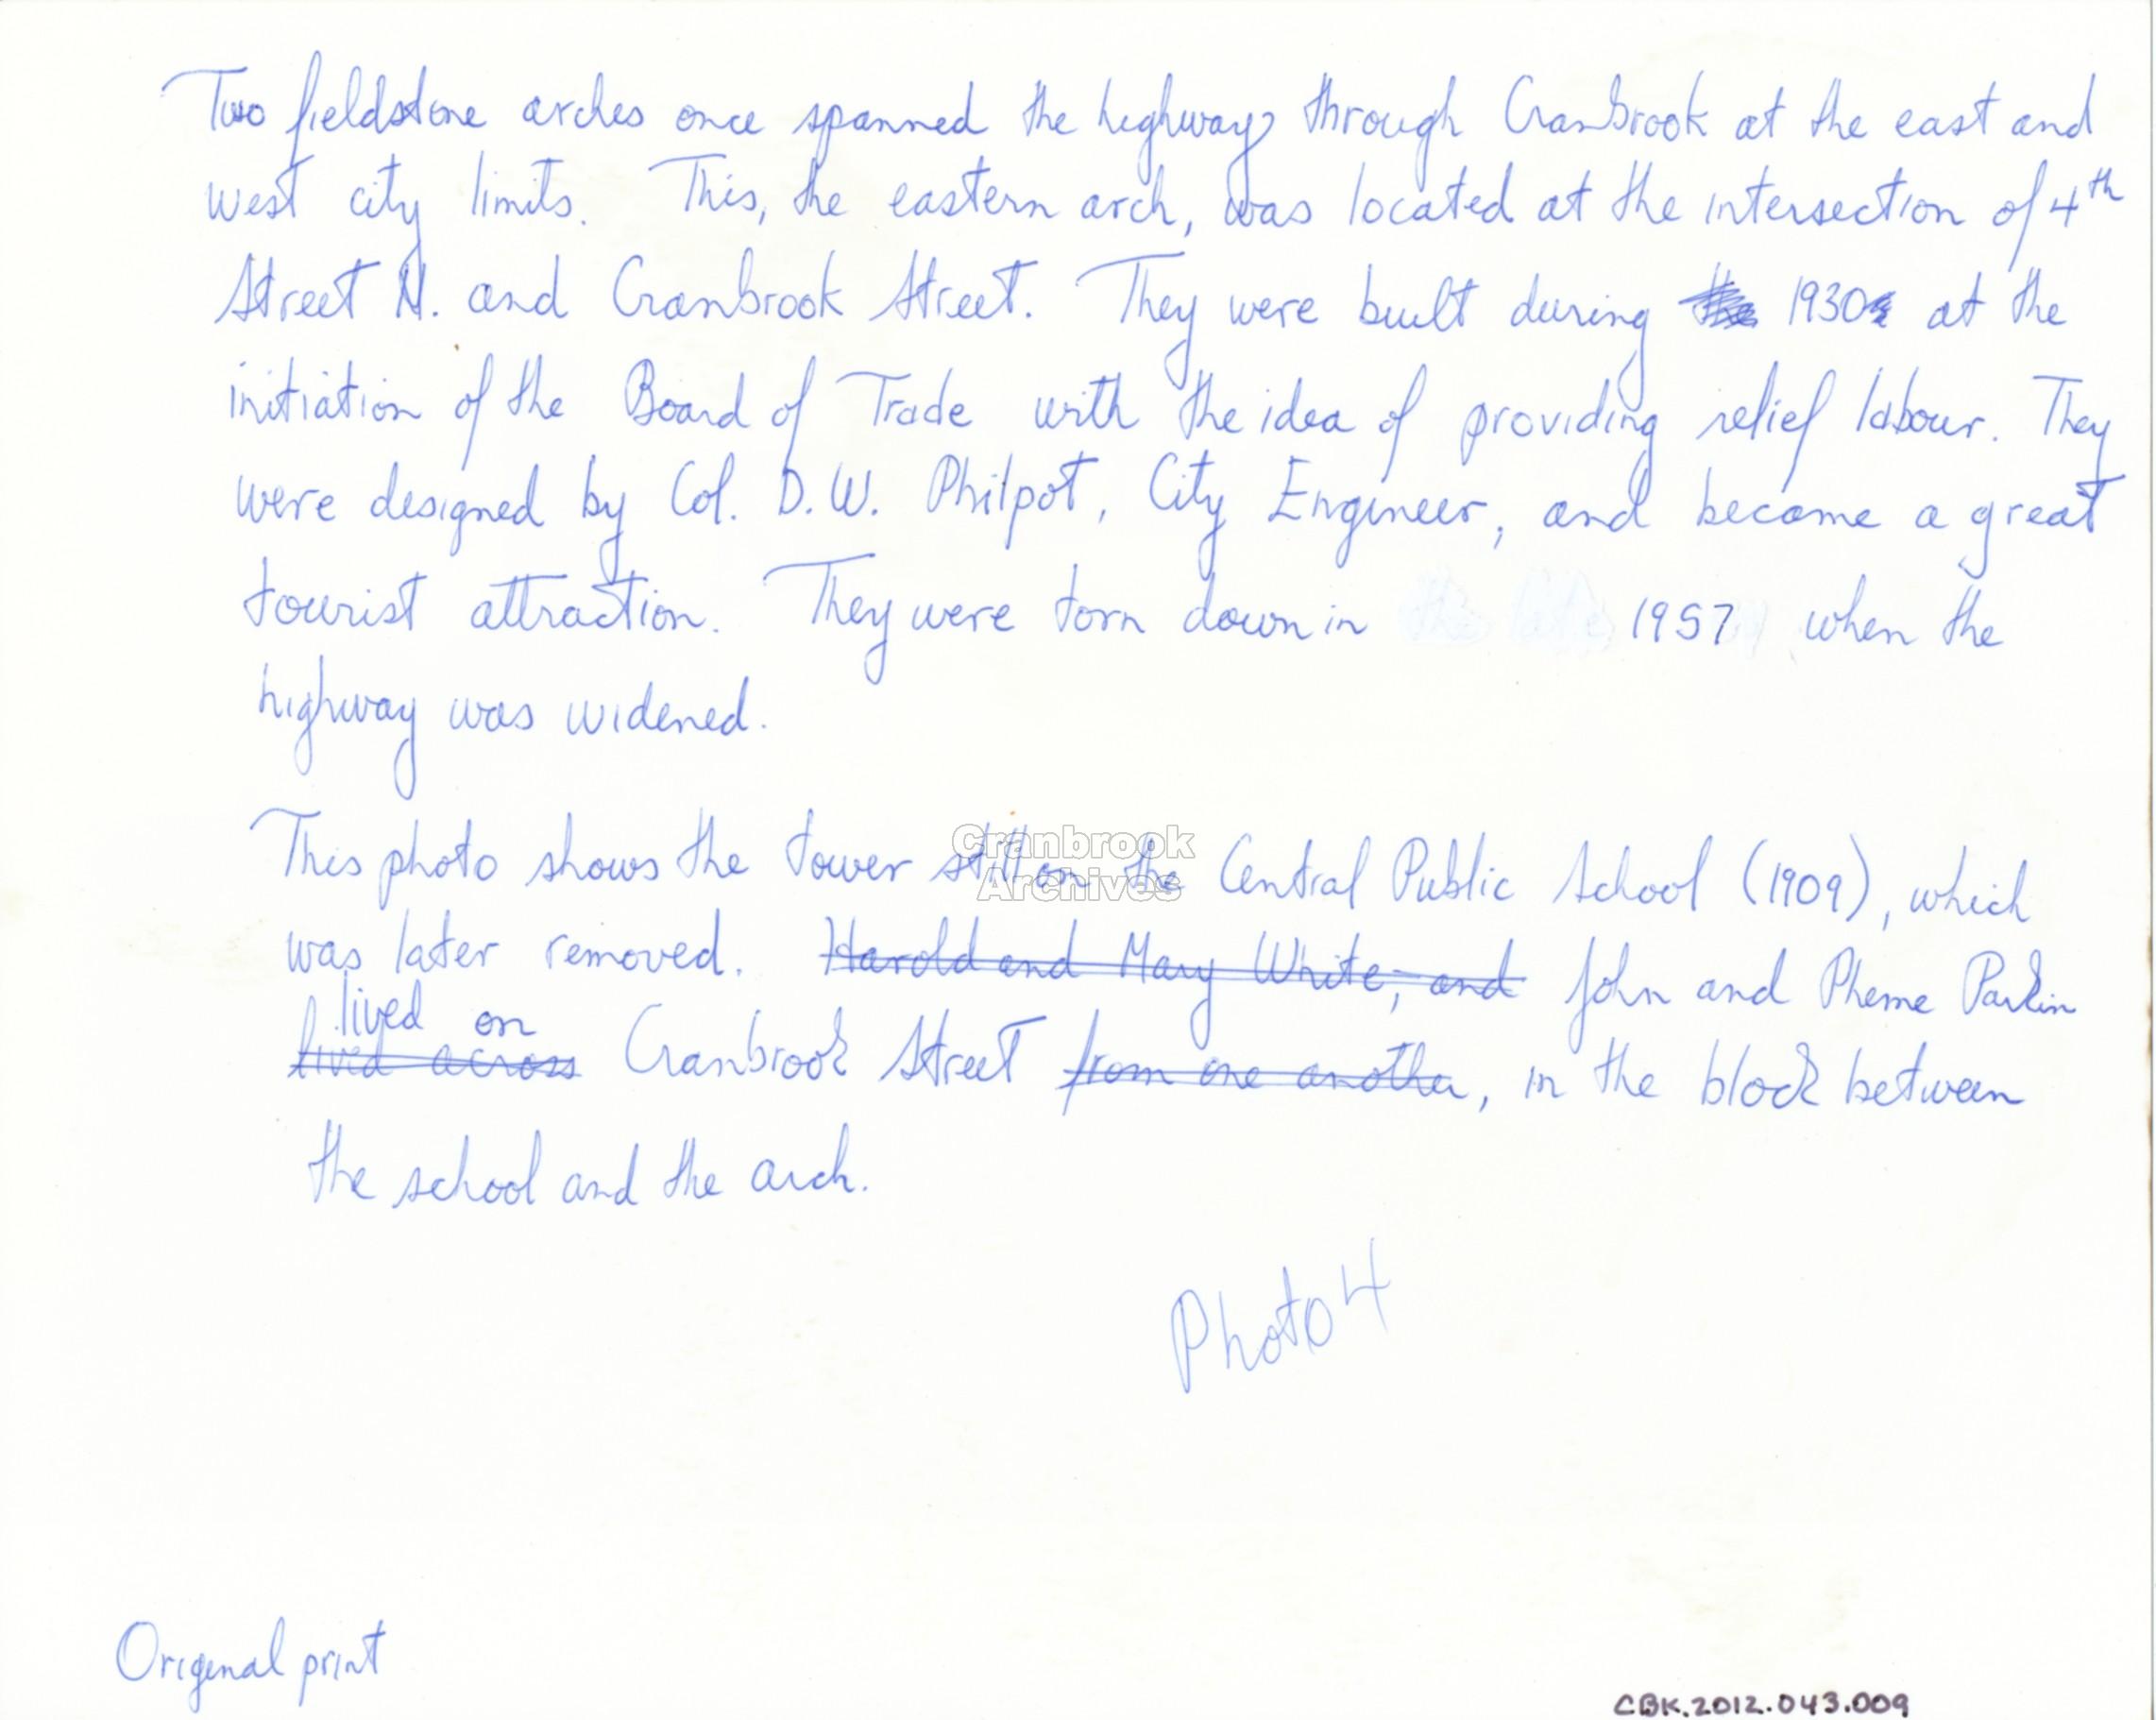 Two fieldstone arches once spanned the highway through Cranbrook at the east and
west city limits. This, the eastern arch, was located at the intersection of 4th
Street N. and Cranbrook Street. They were built during the 1930s at the
initiation of the Board of Trade with the idea of providing relief labour. They
were designed by Col. D.W. Philpot, City Engineer, and became a great
tourist attraction. They were torn down in 1957 when the
highway was widened.
This photo shows the tower still on the Central Public School (1909), which
was later removed. Harold and Mary White, and John and Pheme Parkin
lived on
lived across Cranbrook Street from one another, in the block between
the school and the arch.
Photo 4
Original print
CBK.2012.043.009
Cranbrook
Archives